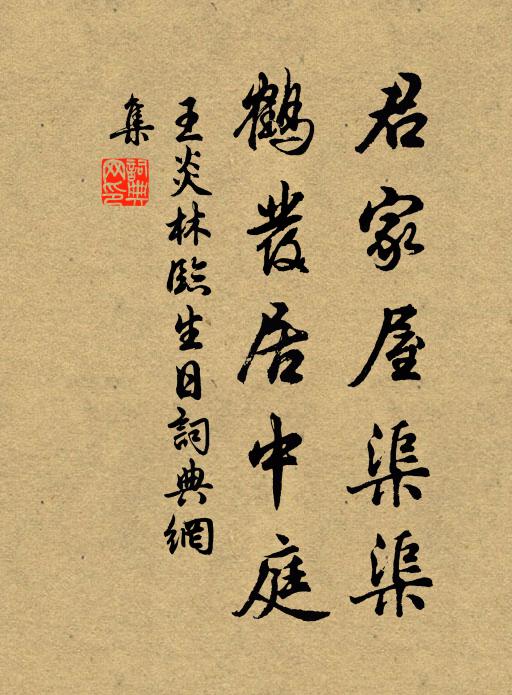 君家屋渠渠
鶴發居中庭
王炎林臨生日詞典網
集
詞典
网印